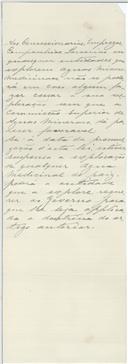 As Concessionarias, Empresas
Companhias, Parceria ou
quaesquer entidades que
explorem aguas minero
medicinaes não se pode
rá em caso algum for
çar cessar a sua ex
ploração sem que a
Commissão Superior de
Aguas Minero
dê parecer.
Se á data da promul
gação d'esta lei estiver
suspensa a exploração
de qualquer Agua
Medicinal do paiz,
poderá a entidade
que a explore reque
rer ao Governo para
que lhe seja applica
da a doutrina do ar
tigo anterior.